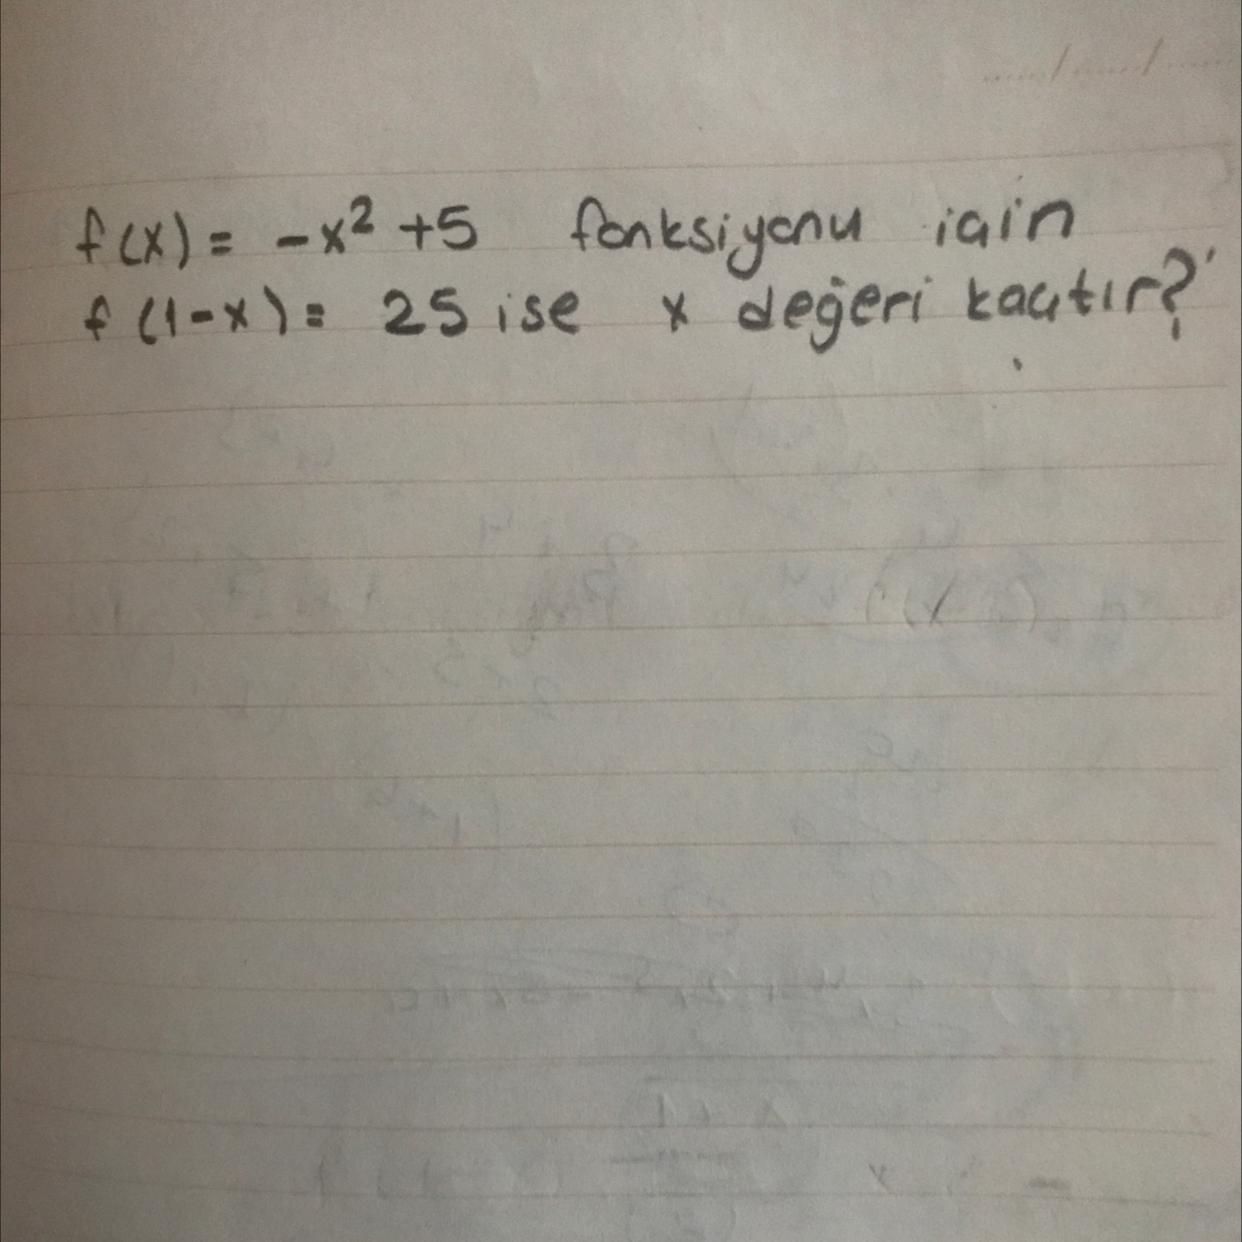 f(x) = -x² +5 fonksiyonu için
f(1-x) = 25 ise x değeri kaçtır?